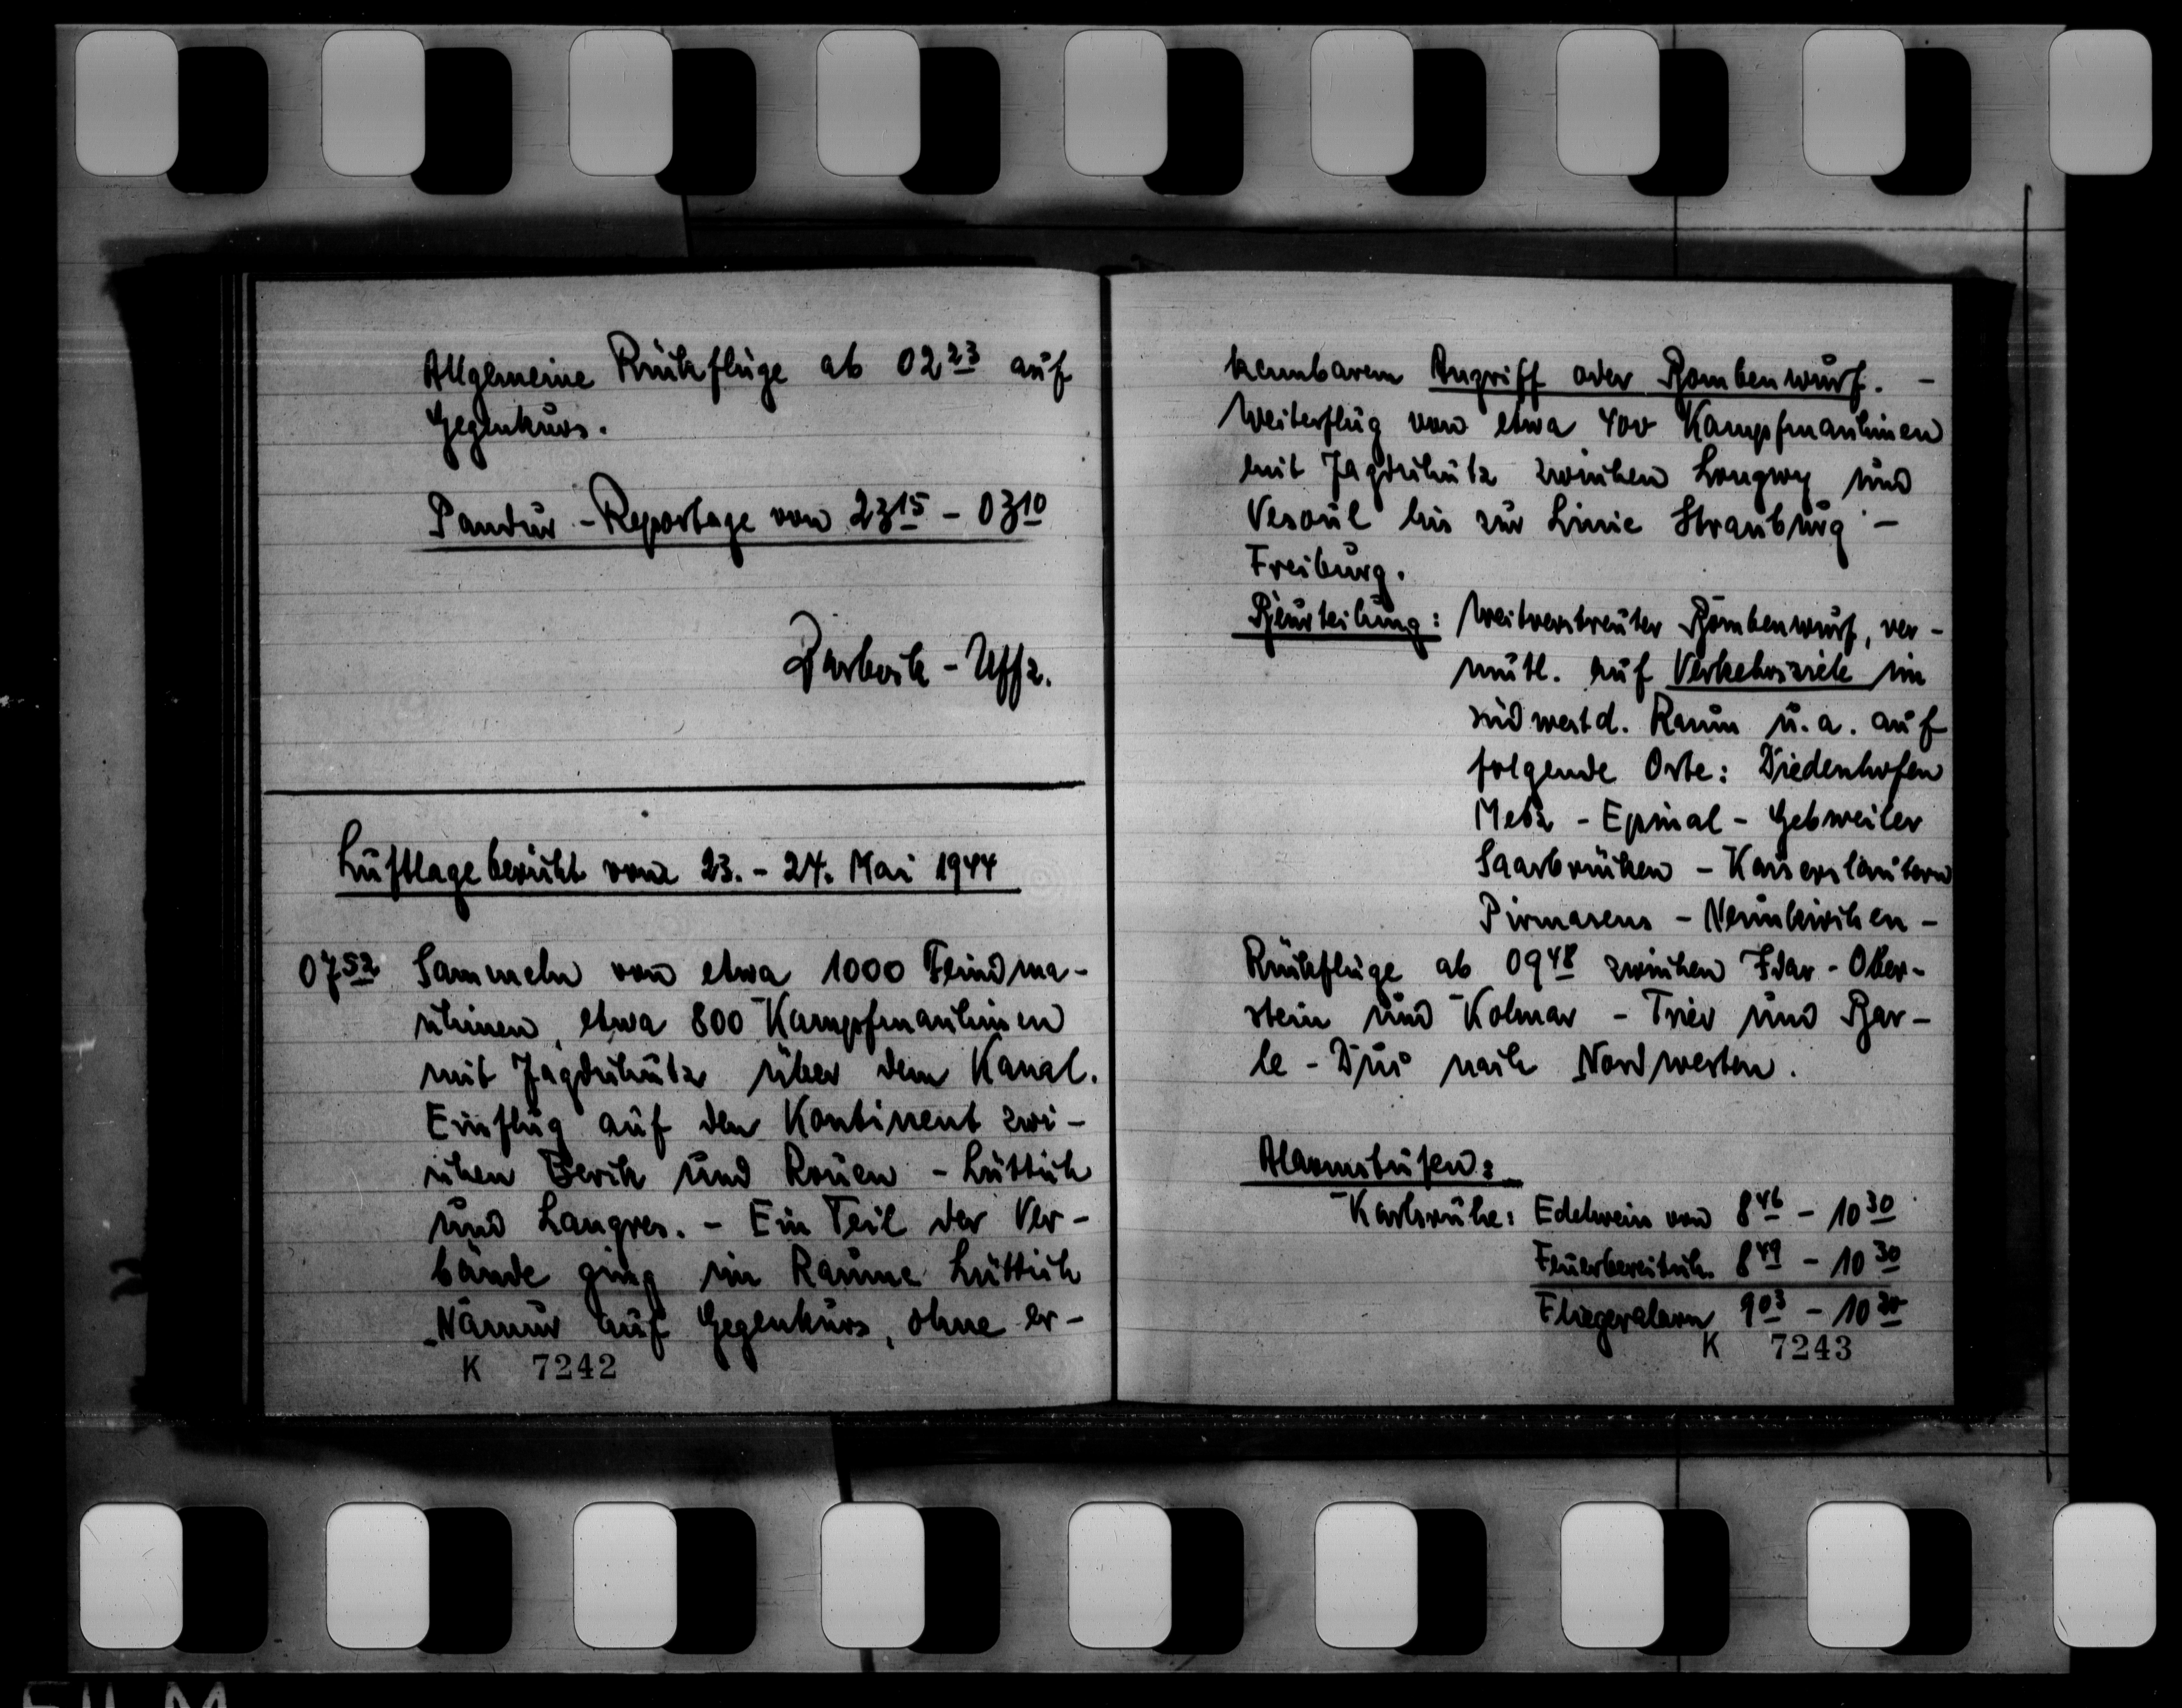 Allgemeine Rückflüge ab 02 23 auf
Gegenkurs.
Pandur - Reportage von 23 15 - 03 10
- Uffz.
Luftlagebericht vom 23. - 24. Mai 1944
07 52 Sammeln von etwa 1000 Feindma-
schinen, etwa 800 Kampfmaschinen
mit Jagdschutz über dem Kanal.
Einflug auf den Kontinent zwi-
schen Berck und Rouen - Lüttich
und Langres. - Ein Teil der Ver-
bände ging im Raume Lüttich
Namur auf Gegenkurs, ohne er-
K 7242
kennbarem Angriff oder Bombenwurf. -
Weiterflug von etwa 400 Kampfmaschinen
mit Jagdschutz zwischen Longwy und
Vesoul bis zur Linie Strassburg -
Freiburg.
Beurteilung: Weitverstreuter Bombenwurf, ver-
mutl. auf Verkehrsziele im
südwestd. Raum u. a. auf
folgende Orte: Diedenhofen
Metz - Epinal - Gebweiler
Saarbrücken - Kaiserslautern
Pirmasens - Neunkirchen -
Rückflüge ab 09 48 zwischen Idar - Ober-
stein und Kolmar - Trier und Bar-
le - Duc nach Nordwesten.
Alarmstufen:
Karlsruhe: Edelweiss von 8 46 - 10 30
Feuerbereitsch. 8 49 - 10 30
Fliegeralarm 9 03 - 10 30
K 7243